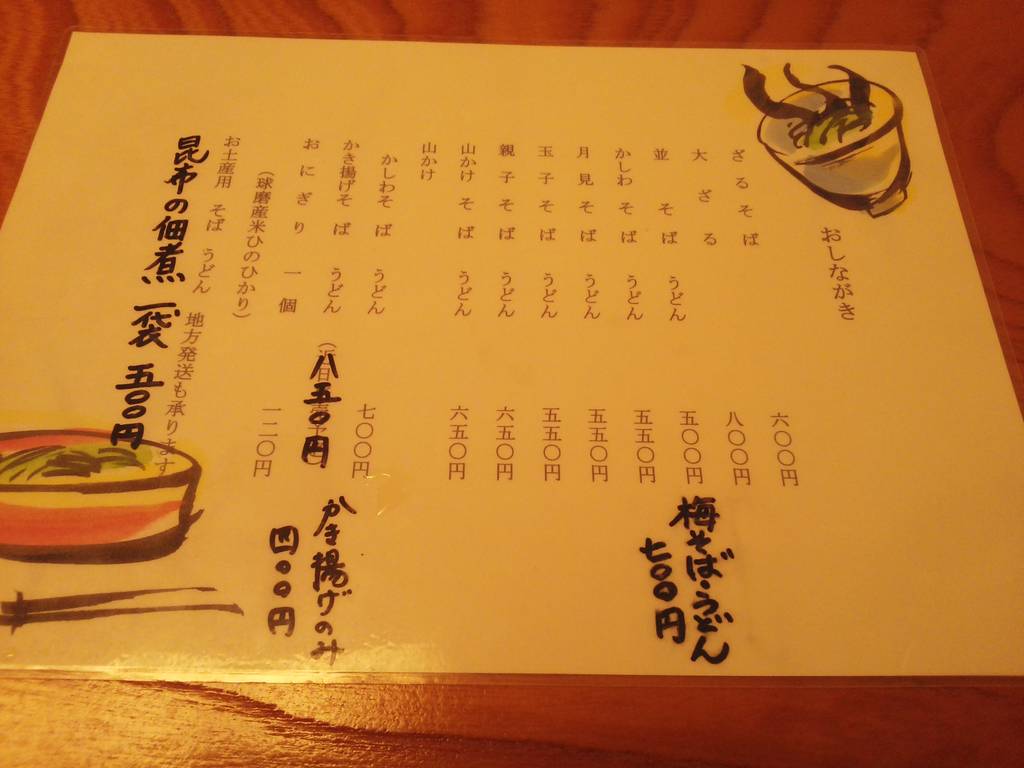 おしながき
ざるそば 六〇〇円
大ざる 八〇〇円
並そば うどん 五〇〇円
梅そば・うどん
七〇〇円
かしわそば うどん 五五〇円
月見そば うどん 五五〇円
玉子そば うどん 五五〇円
親子そば うどん 六五〇円
山かけそば うどん 六五〇円
山かけ
かしわそば うどん 七〇〇円
かき揚げそば うどん 八五〇円
かき揚げのみ
四〇〇円
おにぎり 一個 一二〇円
（球磨産米ひのひかり）
お土産用 そば うどん
地方発送も承ります
昆布の佃煮 一袋 五〇〇円